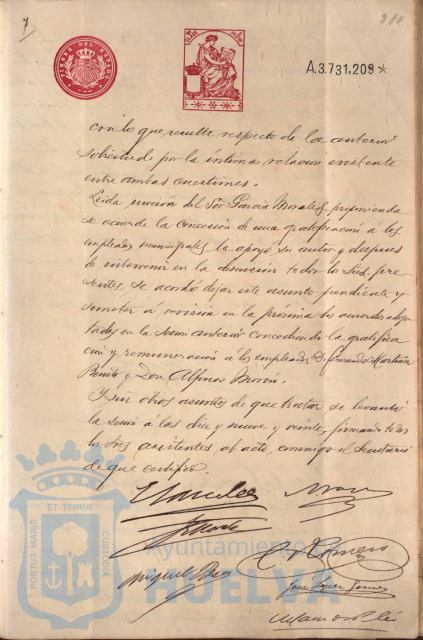 7
TIMBRE DEL ESTADO
A.3.731.209*
con lo que resulte respecto de la anterior
solicitud por la íntima relación existente
entre ambas cuestiones.
Leida moción del Sor. Garcia Morales, proponiendo
se acuerde la concesión de una gratificación á los
empleados municipales, la apoyó su autor y despues
de intervenir en la discusión todos los Sres. pre-
sentes se acordó dejar este asunto pendiente y
someter á revisión en la próxima los acuerdos adop-
tados en la sesion anterior concediendo la gratifica
ción y remuneración á los empleados D. Fernando Martinez
Benito y Don Alfonso Morón.
Y sin otros asuntos de que tratar se levantó
la sesión á las diez y nueve y veinte, firmando todos
los Sres asistentes al acto, conmigo el Secretario
de que certifico.
Miguel
Romero
José López Gómez
ET TERRA
PORTUS MARIS
CUSTODIA
Ayuntamiento de
HUELVA